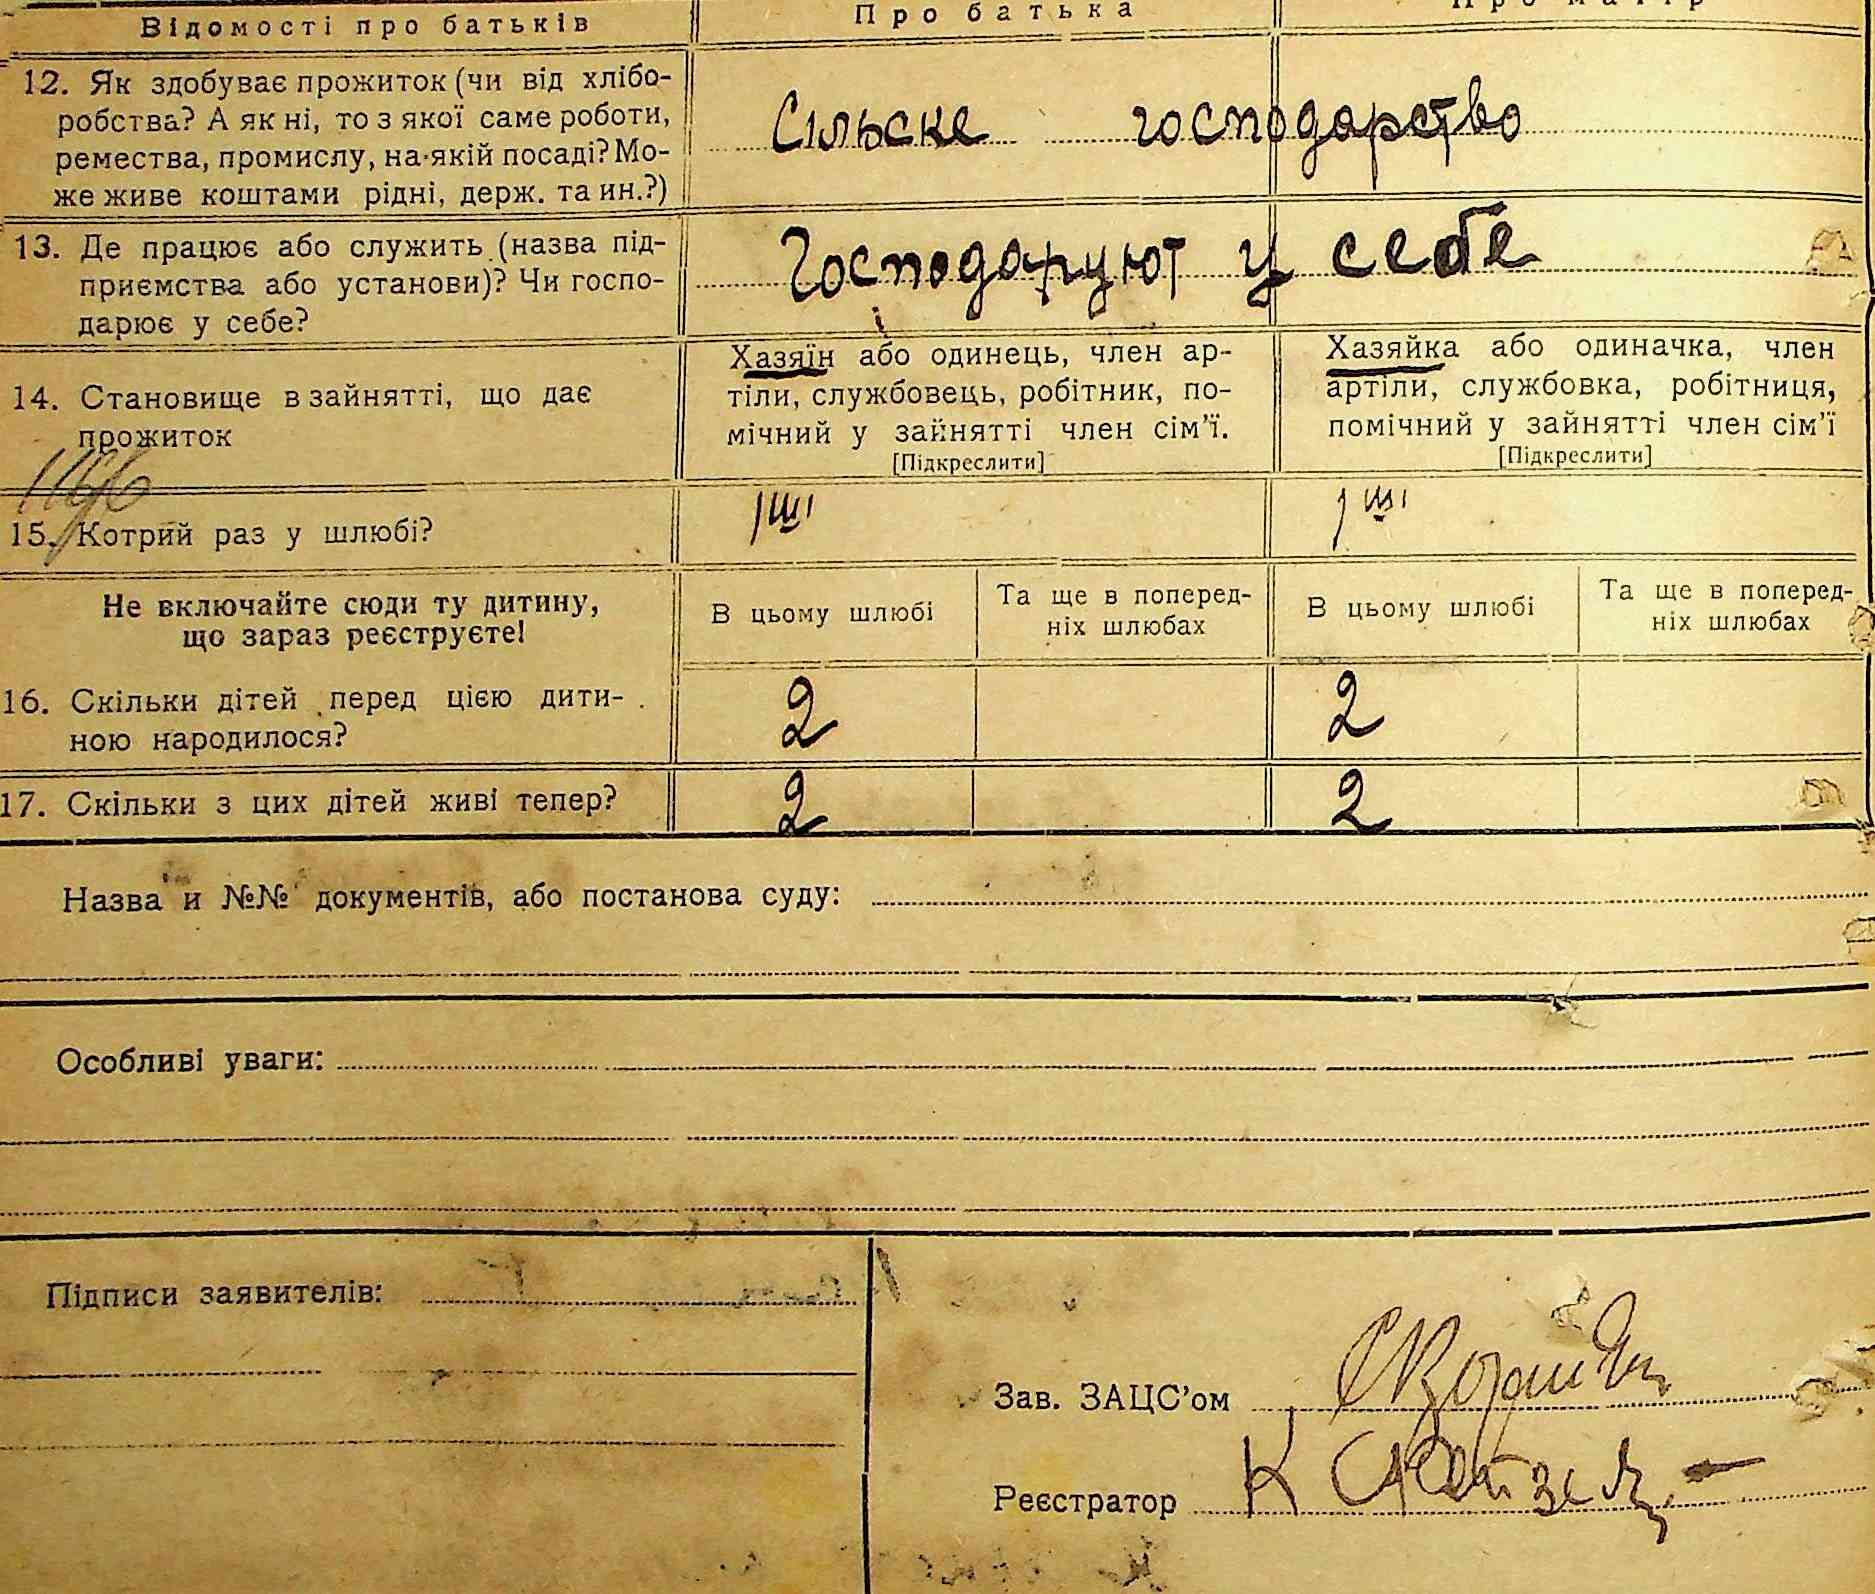 Відомості про батьків
Про батька
12. Як здобуває прожиток (чи від хлібо-
робства? А як ні, то з якої саме роботи,
ремества, промислу, на якій посаді? Мо-
же живе коштами рідні, держ. та ин.?)
Сільске господарство
13. Де працює або служить (назва під-
приємства або установи)? Чи госпо-
дарює у себе?
Господаруют у себе
14. Становище в зайнятті, що дає
прожиток
Хазяїн або одинець, член ар-
тіли, службовець, робітник, по-
мічний у зайнятті член сім'ї.
[Підкреслити]
Хазяйка або одиначка, член
артіли, службовка, робітниця,
помічний у зайнятті член сім'ї
[Підкреслити]
15. Котрий раз у шлюбі?
1ші
1ші
Не включайте сюди ту дитину,
що зараз реєструєте!
В цьому шлюбі
Та ще в поперед-
ніх шлюбах
В цьому шлюбі
Та ще в поперед-
ніх шлюбах
16. Скільки дітей перед цією дити-
ною народилося?
2
2
17. Скільки з цих дітей живі тепер?
2
2
Назва и №№ документів, або постанова суду:
Особливі уваги:
Підписи заявителів:
Зав. ЗАЦС'ом
Реєстратор К